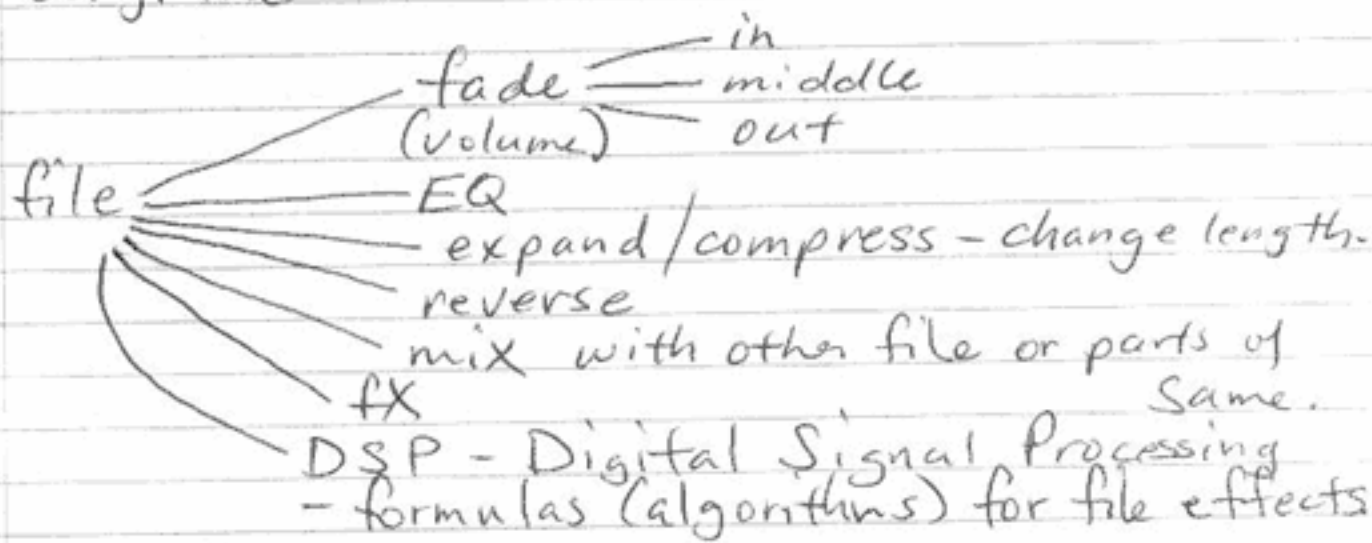 in
fade middle
(volume) out
file EQ
expand/compress - change length.
reverse
mix with other file or parts of
same.
fX
DSP - Digital Signal Processing
- formulas (algorithms) for file effects